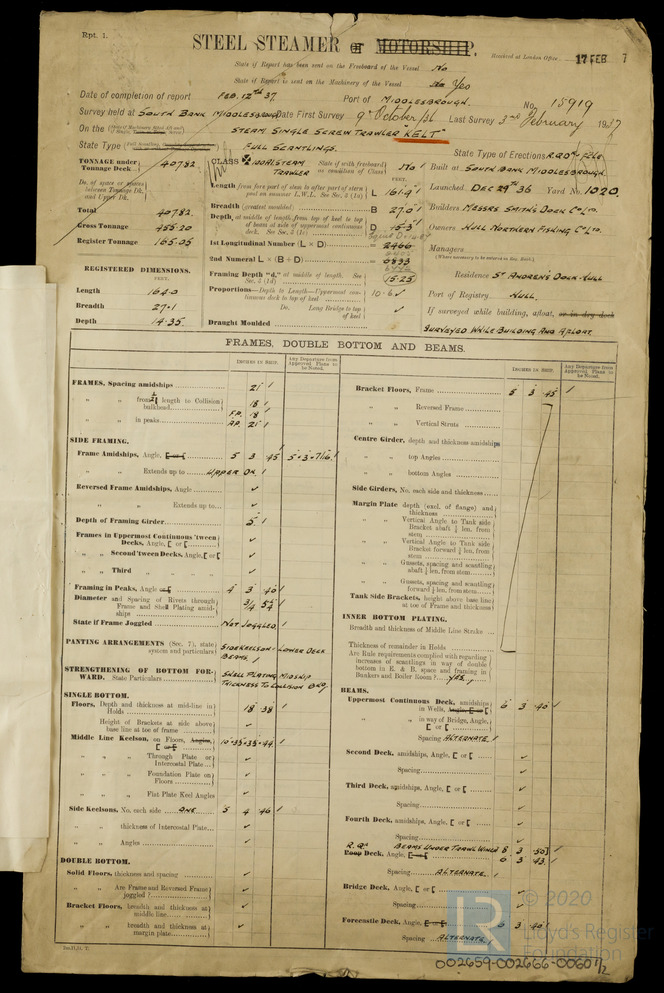 Rpt. 1.
STEEL STEAMER or MOTORSHIP.
Received at London Office 17 FEB 7
State if Report has been sent on the Freeboard of the Vessel No
State if Report is sent on the Machinery of the Vessel Yes
Date of completion of report FEB. 12TH 37. Port of MIDDLESBROUGH. No. 15919
Survey held at SOUTH BANK MIDDLESBRO Date First Survey 9th October/36 Last Survey 3rd February 1937
On the STEAM SINGLE SCREW TRAWLER "KELT"
State Type FULL SCANTLINGS. State Type of Erections R.QDK & FCLE
TONNAGE under Tonnage Deck 407.82
CLASS 100A1 STEAM TRAWLER State if with freeboard as condition of Class No
Built at SOUTH BANK MIDDLESBROUGH.
Do. of space or spaces between Tonnage Dk. and Upper Dk.
Total 407.82
Gross Tonnage 455.20
Register Tonnage 165.05
Length from fore part of stem to after part of stern post on summer L.W.L. See Sec. 3 (1a) L 161.9
Breadth (greatest moulded) B 27.0
Depth, at middle of length from top of keel to top of beam at side of uppermost continuous deck. See Sec. 3 (1c) D 15.3
1st Longitudinal Number (L × D) = 2466
2nd Numeral L × (B + D) =
Framing Depth "d," at middle of length. See Sec. 3 (1d) 15.25
Proportions—Depth to Length—Uppermost continuous deck to top of keel 10.6
Do. Long Bridge to top of keel
Draught Moulded
Launched. DEC 29TH 36 Yard No. 1020
Builders MESSRS. SMITH'S DOCK CO LTD.
Owners HULL NORTHERN FISHING CO LTD.
Managers
(Where necessary to be entered in Reg. Book.)
Residence ST ANDREW'S DOCK-HULL
Port of Registry HULL.
If surveyed while building, afloat, or in dry dock
SURVEYED WHILE BUILDING AND AFLOAT.
REGISTERED DIMENSIONS.
FEET.
Length 164.0
Breadth 27.1
Depth 14.35
FRAMES, DOUBLE BOTTOM AND BEAMS.
INCHES IN SHIP. Any Departure from Approved Plans to be Noted.
INCHES IN SHIP. Any Departure from Approved Plans to be Noted.
FRAMES, Spacing amidships 21
" " from length to Collision bulkhead 18
" " in peaks F.P. 18
A.P. 21
SIDE FRAMING.
Frame Amidships, Angle, [ or [ 5 3 .45
" " Extends up to UPPER DK.
Reversed Frame Amidships, Angle
" " Extends up to
Depth of Framing Girder 5
Frames in Uppermost Continuous 'tween Decks, Angle, [ or [
" " Second 'tween Decks, Angle, [ or [
" " Third " " "
Framing in Peaks, Angle or [ 4 3 .40
Diameter and Spacing of Rivets through Frame and Shell Plating amidships
State if Frame Joggled NOT JOGGLED.
PANTING ARRANGEMENTS (Sec. 7), state system and particulars SIDE KEELSON - LOWER DECK BEAMS.
STRENGTHENING OF BOTTOM FORWARD. State Particulars SHELL PLATING MIDSHIP THICKNESS TO COLLISION BHD.
SINGLE BOTTOM.
Floors, Depth and thickness at mid-line in Holds 18 .38
Height of Brackets at side above base line at toe of frame
Middle Line Keelson, on Floors, Angles, [ or [ 10 × 3.5 × 3.5 × .44
" " Through Plate or Intercostal Plate
" " Foundation Plate on Floors
" " Flat Plate Keel Angles
Side Keelsons, No. each side ONE 5 4 .46
" " thickness of Intercostal Plate
" " Angles
DOUBLE BOTTOM.
Solid Floors, thickness and spacing
" " Are Frame and Reversed Frame joggled?
Bracket Floors, breadth and thickness at middle line
" " breadth and thickness at margin plate
Bracket Floors, Frame 5 3 .45
" " Reversed Frame
" " Vertical Struts
Centre Girder, depth and thickness amidships
" " top Angles
" " bottom Angles
Side Girders, No. each side and thickness
Margin Plate depth (excl. of flange) and thickness
" " Vertical Angle to Tank side Bracket abaft ¼ len. from stem
" " Vertical Angle to Tank side Bracket forward ¼ len. from stem
" " Gussets, spacing and scantling abaft ¼ len. from stem
" " Gussets, spacing and scantling forward ¼ len. from stem
Tank Side Brackets, height above base line at toe of Frame and thickness
INNER BOTTOM PLATING.
Breadth and thickness of Middle Line Strake
Thickness of remainder in Holds
Are Rule requirements complied with regarding increases of scantlings in way of double bottom in E. & B. space and framing in Bunkers and Boiler Room? YES.
BEAMS.
Uppermost Continuous Deck, amidships in Wells, Angle, [ or [ 6 3 .40
" " in way of Bridge, Angle, [ or [
Spacing ALTERNATE.
Second Deck, amidships, Angle, [ or [
Spacing
Third Deck, amidships, Angle, [ or [
Spacing
Fourth Deck, amidships, Angle, [ or [
Spacing
R. Qr BEAMS UNDER TRAWL WINCH 8 3 .50
Poop Deck, Angle, [ or [ 6 3 .43
Spacing ALTERNATE.
Bridge Deck, Angle, [ or [
Spacing
Forecastle Deck, Angle, [ or [ 6 3 .40
Spacing ALTERNATE.
LR
© 2020
Lloyd's Register
Foundation
002659-002666-0060 1/2